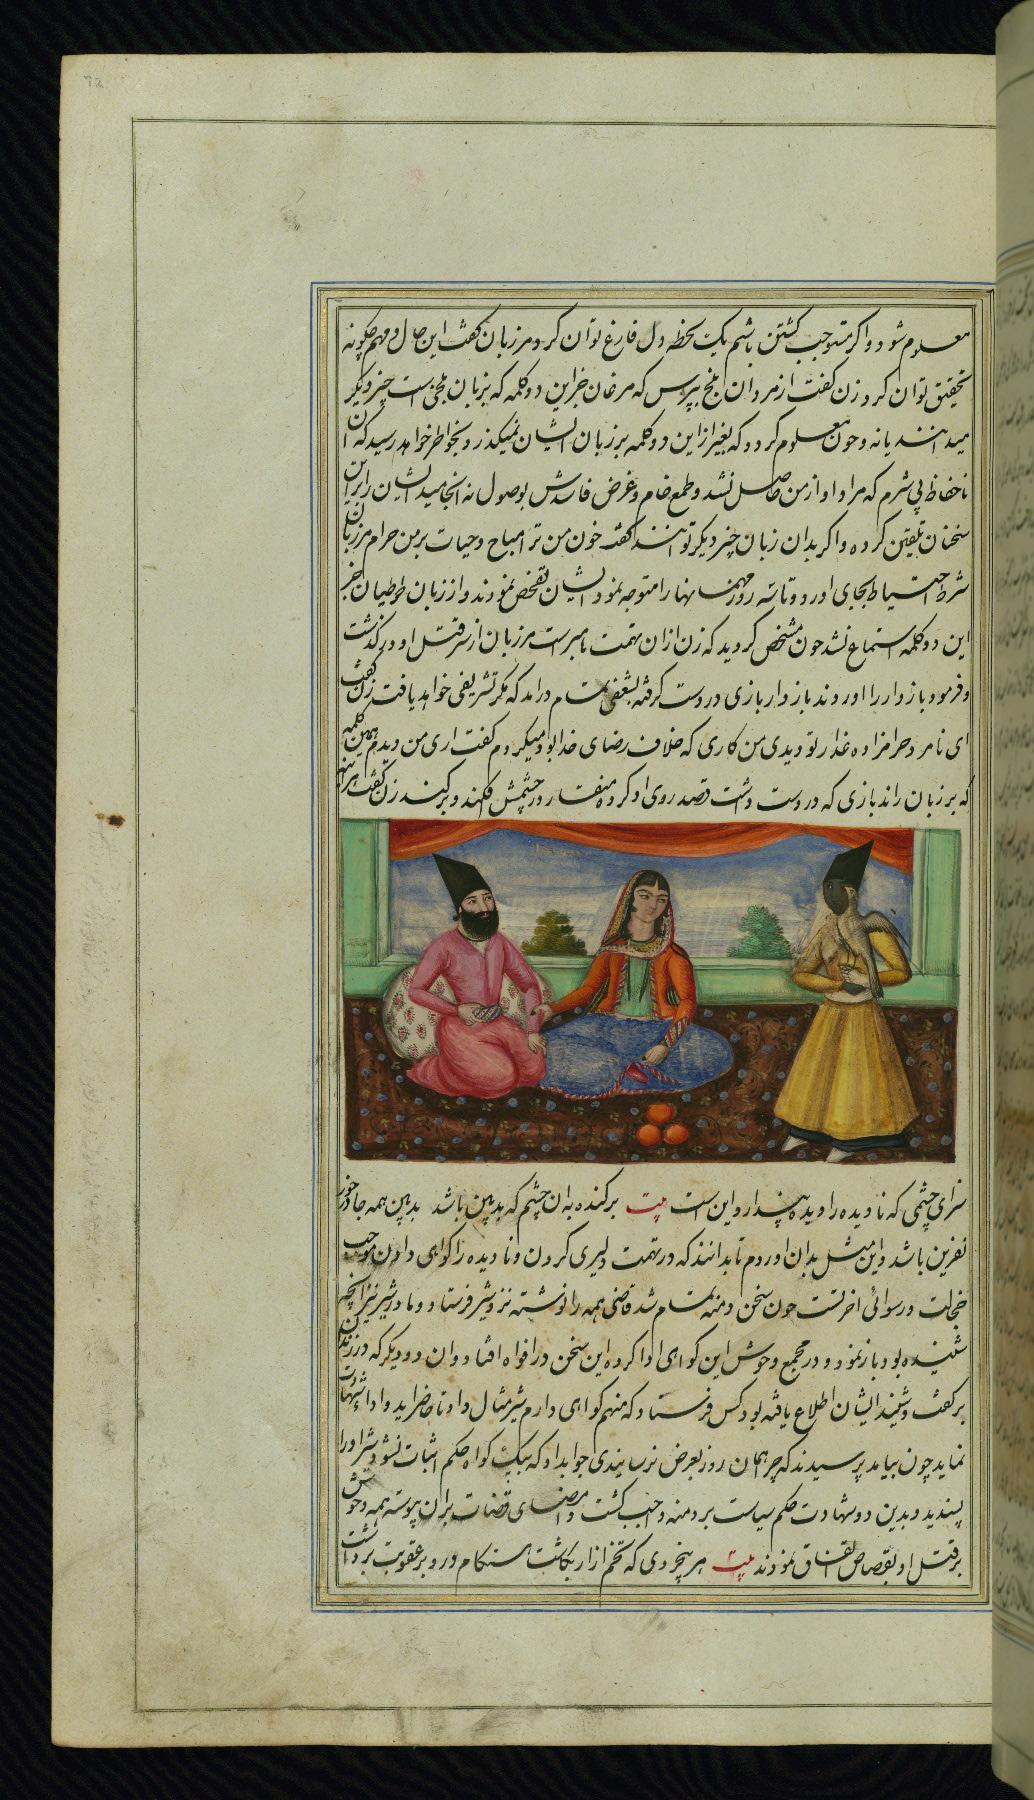 72
معلوم شود و اکر مستوجب کشتن باشم یک لحظه دل فارغ توان کرد مرزبان کفت این حال و مهم چکونه
تحقیق توان کرد زن کفت از مردمان بلخ بپرس که مرغان جز این دو کلمه که بزبان بلخی است چیز دیکر
میدانند یا نه و چون معلوم کردد که بغیر از این دو کلمه بر زبان ایشان نمیکذرد بخواطر خواهد رسید که آن
ناحفاظ بی شرم که مراد او از من حاصل نشد و طمع خام و غرض فاسدش بوصول نه انجامید ایشان را این
سخنان تلقین کرده و اکر بدان زبان چیز دیکر توانند کفت خون من ترا مباح و حیات بر من حرام مرزبان
شرط احتیاط بجای اورد و تا سه روز مهمانها را متوجه نمود ایشان تفحص نمودند و از زبان طوطیان جز
این دو کلمه استماع نشد چون مشخص کردید که زن از ان تهمت مبراست مرزبان از سر قتل او در کذشت
و فرمود بازدار را اوردند بازدار بازی در دست کرفته بشعفی تمام درامد که مکر تشریفی خواهد یافت زن کفت
ای نامرد حرامزاده غدار تو دیدی من کاری که خلاف رضای خدا بود میکردم کفت اری من دیدم همین کلمه
که بر زبان راند بازی که در دست داشت قصد روی او کرده منقار در چشمش فکند و بر کند زن کفت
سزای چشمی که نادیده را دیده پندارد این است بیت برکنده به ان چشم که بدبین باشد بدبین همه جا در خور
نفرین باشد و این مثل بدان اوردم تا بدانند که در تهمت دلیری کردن و نادیده را کواهی دادن موجب
خجلت و رسوائی اخرتست چون سخن دمنه تمام شد قاضی همه را نوشته نزد شیر فرستاد و مادر شیر نیز انچه
شنیده بود باز نمود و در مجمع وحوش این کواهی ادا کرده این سخن در افواه افتاد و ان دد دیکر که در زندان
بر کفت و شنید ایشان اطلاع یافته بود کس فرستاد که منهم کواهی دارم شیر مثال داد تا حاضر اید و اداء شهادت
نماید چون بیامد پرسیدند که چرا همان روز بعرض نرسانیدی جواب داد که بیک کواه حکم اثبات نشود شیر او را
پسندید و بدین دو شهادت حکم سیاست بر دمنه واجب کشت و امضای قضات بران پیوسته همه وحوش
بر قتل او بقصاص اتفاق نمودند بیت هر بیخردی که تخم ازار بکاشت هنکام درو بر عقوبت برداشت